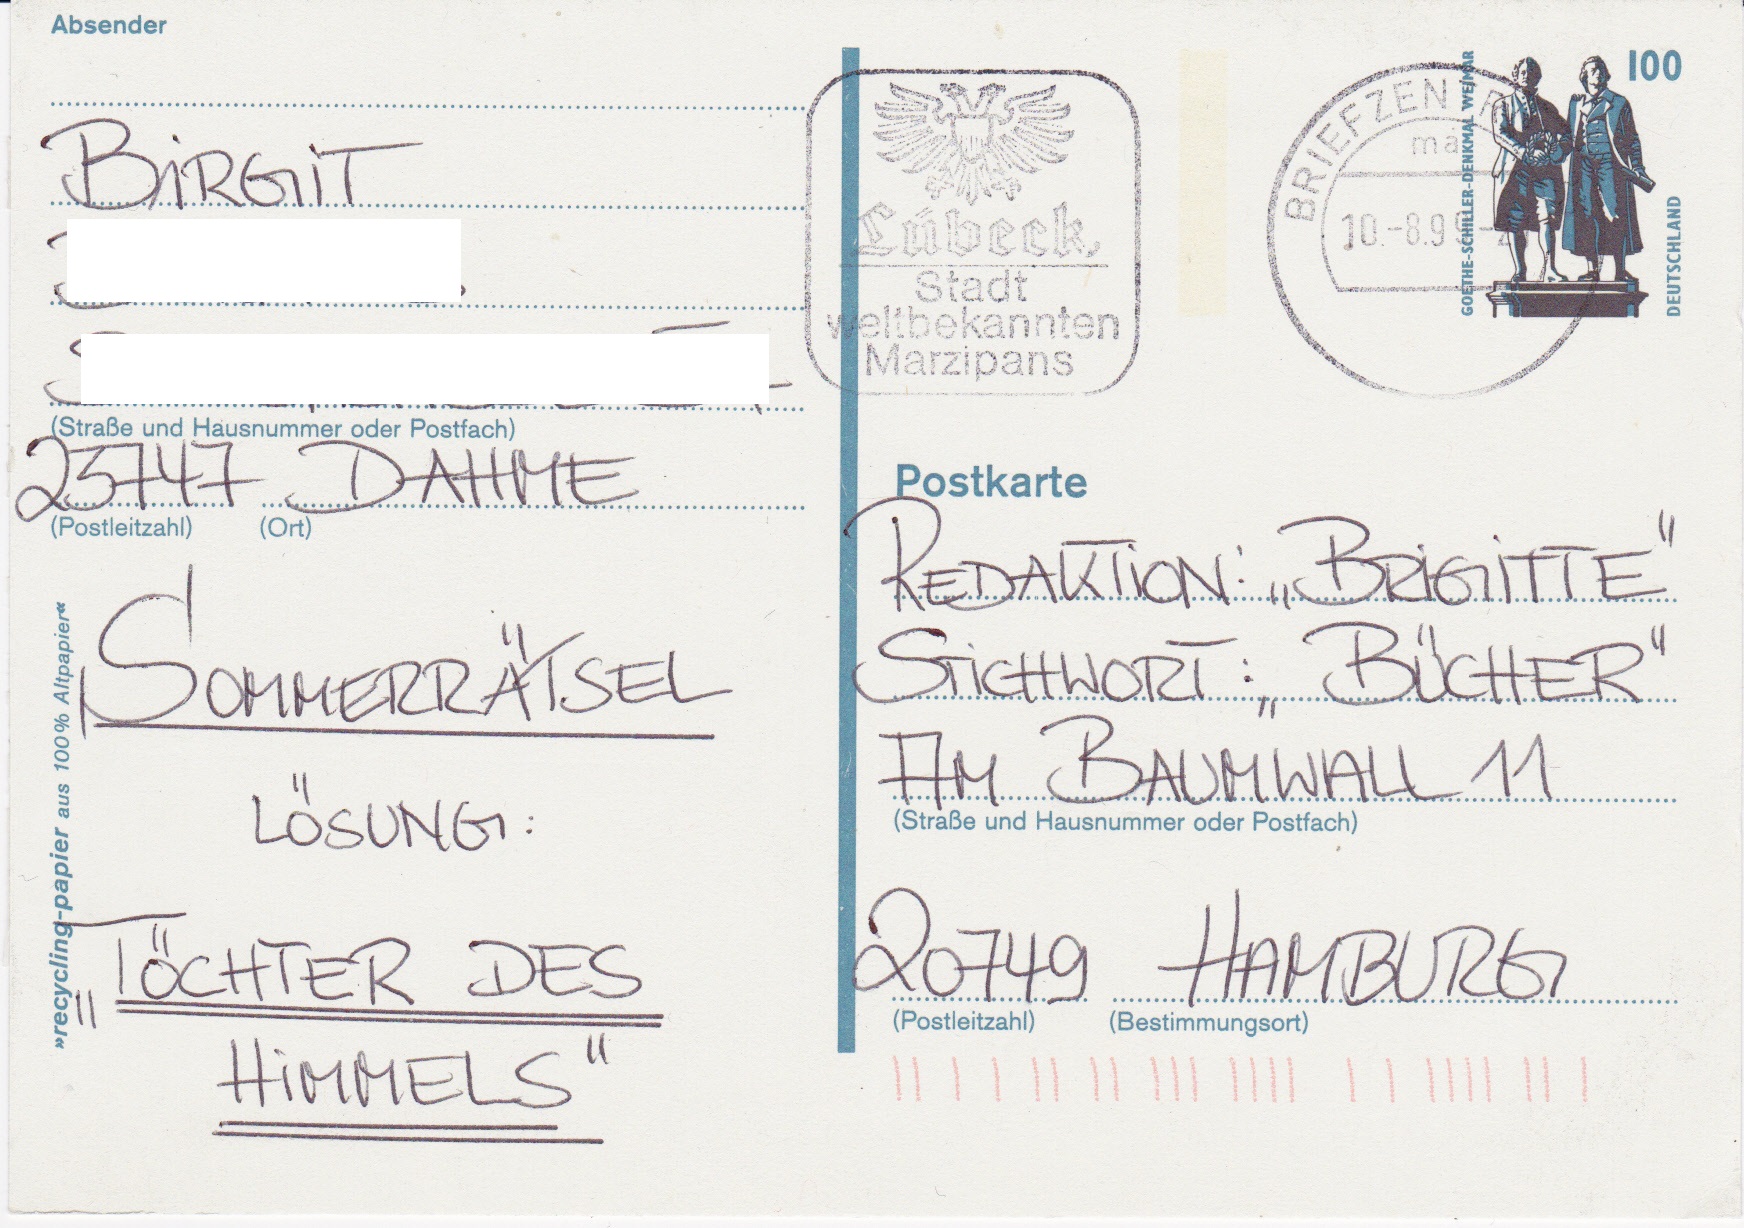 Absender
BIRGIT
(Straße und Hausnummer oder Postfach)
23747 DAHME
(Postleitzahl) (Ort)
»recycling-papier aus 100% Altpapier«
SOMMERRÄTSEL
LÖSUNG:
„TÖCHTER DES
HIMMELS"
Lübeck
Stadt
weltbekannten
Marzipans
BRIEFZEN
10.-8.9
100
GOETHE-SCHILLER-DENKMAL WEIMAR
DEUTSCHLAND
Postkarte
REDAKTION: „BRIGITTE"
STICHWORT: „BÜCHER"
AM BAUMWALL 11
(Straße und Hausnummer oder Postfach)
20749 HAMBURG
(Postleitzahl) (Bestimmungsort)